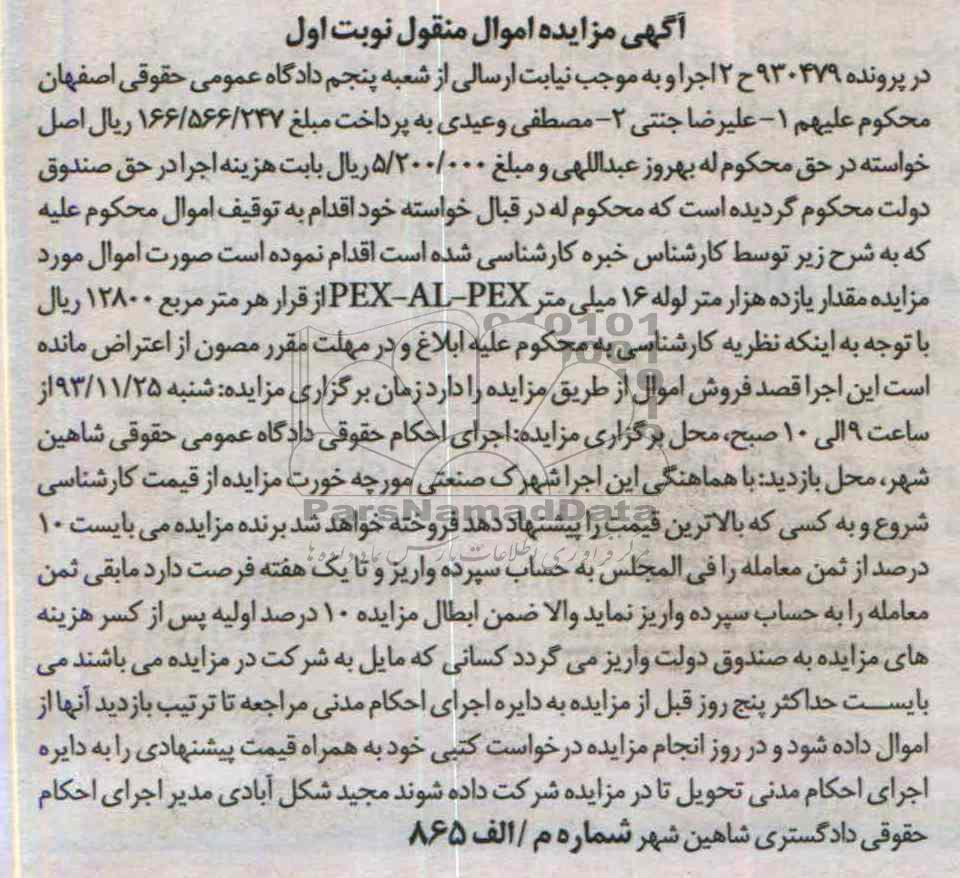 آگهی مزایده اموال منقول نوبت اول
در پرونده ۹۳۰۴۷۹ ح ۲ اجرا و به موجب نیابت ارسالی از شعبه پنجم دادگاه عمومی حقوقی اصفهان
محکوم علیهم ۱- علیرضا جنتی ۲- مصطفی وعیدی به پرداخت مبلغ ۱۶۶/۵۶۶/۲۴۷ ریال اصل
خواسته در حق محکوم له بهروز عبداللهی و مبلغ ۵/۲۰۰/۰۰۰ ریال بابت هزینه اجرا در حق صندوق
دولت محکوم گردیده است که محکوم له در قبال خواسته خود اقدام به توقیف اموال محکوم علیه
که به شرح زیر توسط کارشناس خبره کارشناسی شده است اقدام نموده است صورت اموال مورد
مزایده مقدار یازده هزار متر لوله ۱۶ میلی متر PEX-AL-PEX از قرار هر متر مربع ۱۲۸۰۰ ریال
با توجه به اینکه نظریه کارشناسی به محکوم علیه ابلاغ و در مهلت مقرر مصون از اعتراض مانده
است این اجرا قصد فروش اموال از طریق مزایده را دارد زمان برگزاری مزایده: شنبه ۹۳/۱۱/۲۵ از
ساعت ۹ الی ۱۰ صبح، محل برگزاری مزایده: اجرای احکام حقوقی دادگاه عمومی حقوقی شاهین
شهر، محل بازدید: با هماهنگی این اجرا شهرک صنعتی مورچه خورت مزایده از قیمت کارشناسی
شروع و به کسی که بالاترین قیمت را پیشنهاد دهد فروخته خواهد شد برنده مزایده می بایست ۱۰
درصد از ثمن معامله را فی المجلس به حساب سپرده واریز و تا یک هفته فرصت دارد مابقی ثمن
معامله را به حساب سپرده واریز نماید والا ضمن ابطال مزایده ۱۰ درصد اولیه پس از کسر هزینه
های مزایده به صندوق دولت واریز می گردد کسانی که مایل به شرکت در مزایده می باشند می
بایست حداکثر پنج روز قبل از مزایده به دایره اجرای احکام مدنی مراجعه تا ترتیب بازدید آنها از
اموال داده شود و در روز انجام مزایده درخواست کتبی خود به همراه قیمت پیشنهادی را به دایره
اجرای احکام مدنی تحویل تا در مزایده شرکت داده شوند مجید شکل آبادی مدیر اجرای احکام
حقوقی دادگستری شاهین شهر شماره م / الف ۸۶۵
ParsNamadData